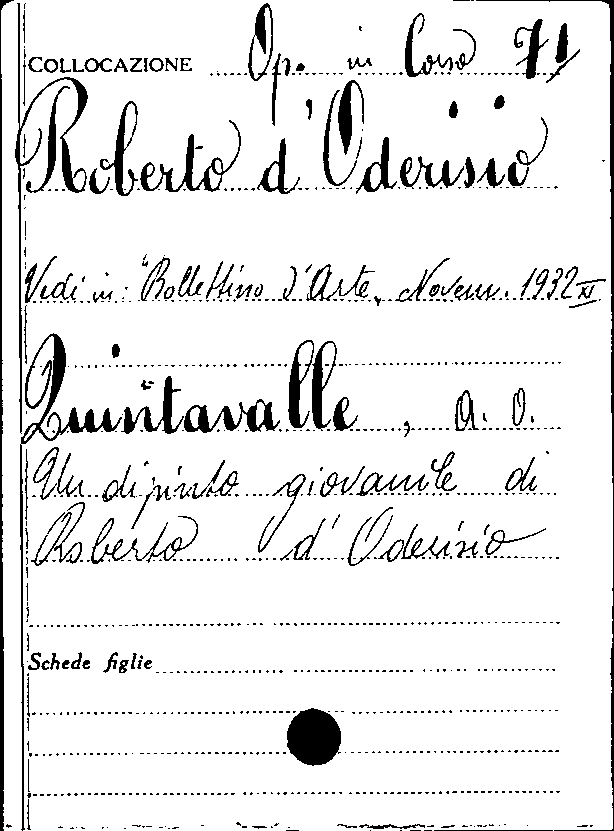 COLLOCAZIONE Op. in Corso 71
Roberto d'Oderisio
Vedi in: "Bollettino d'Arte„ Novem. 1932 XI
Quintavalle, A. O.
Un dipinto giovanile di
Roberto d'Oderisio
Schede figlie